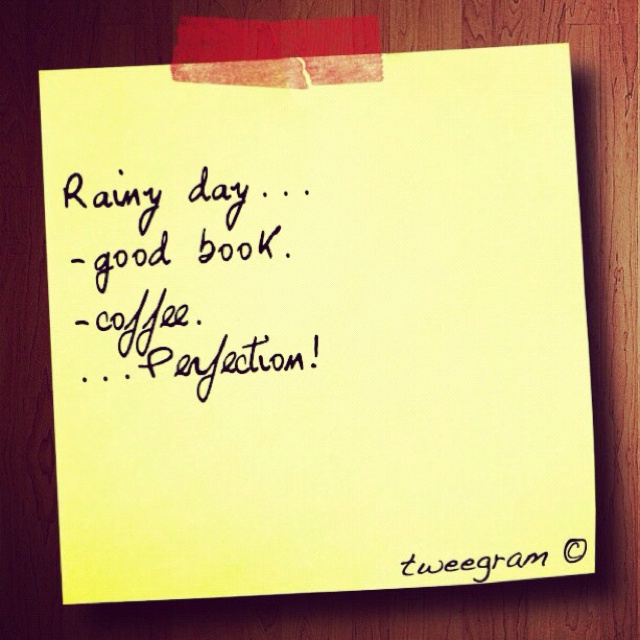 Rainy day...
-good book.
-coffee.
...Perfection!
tweegram ©